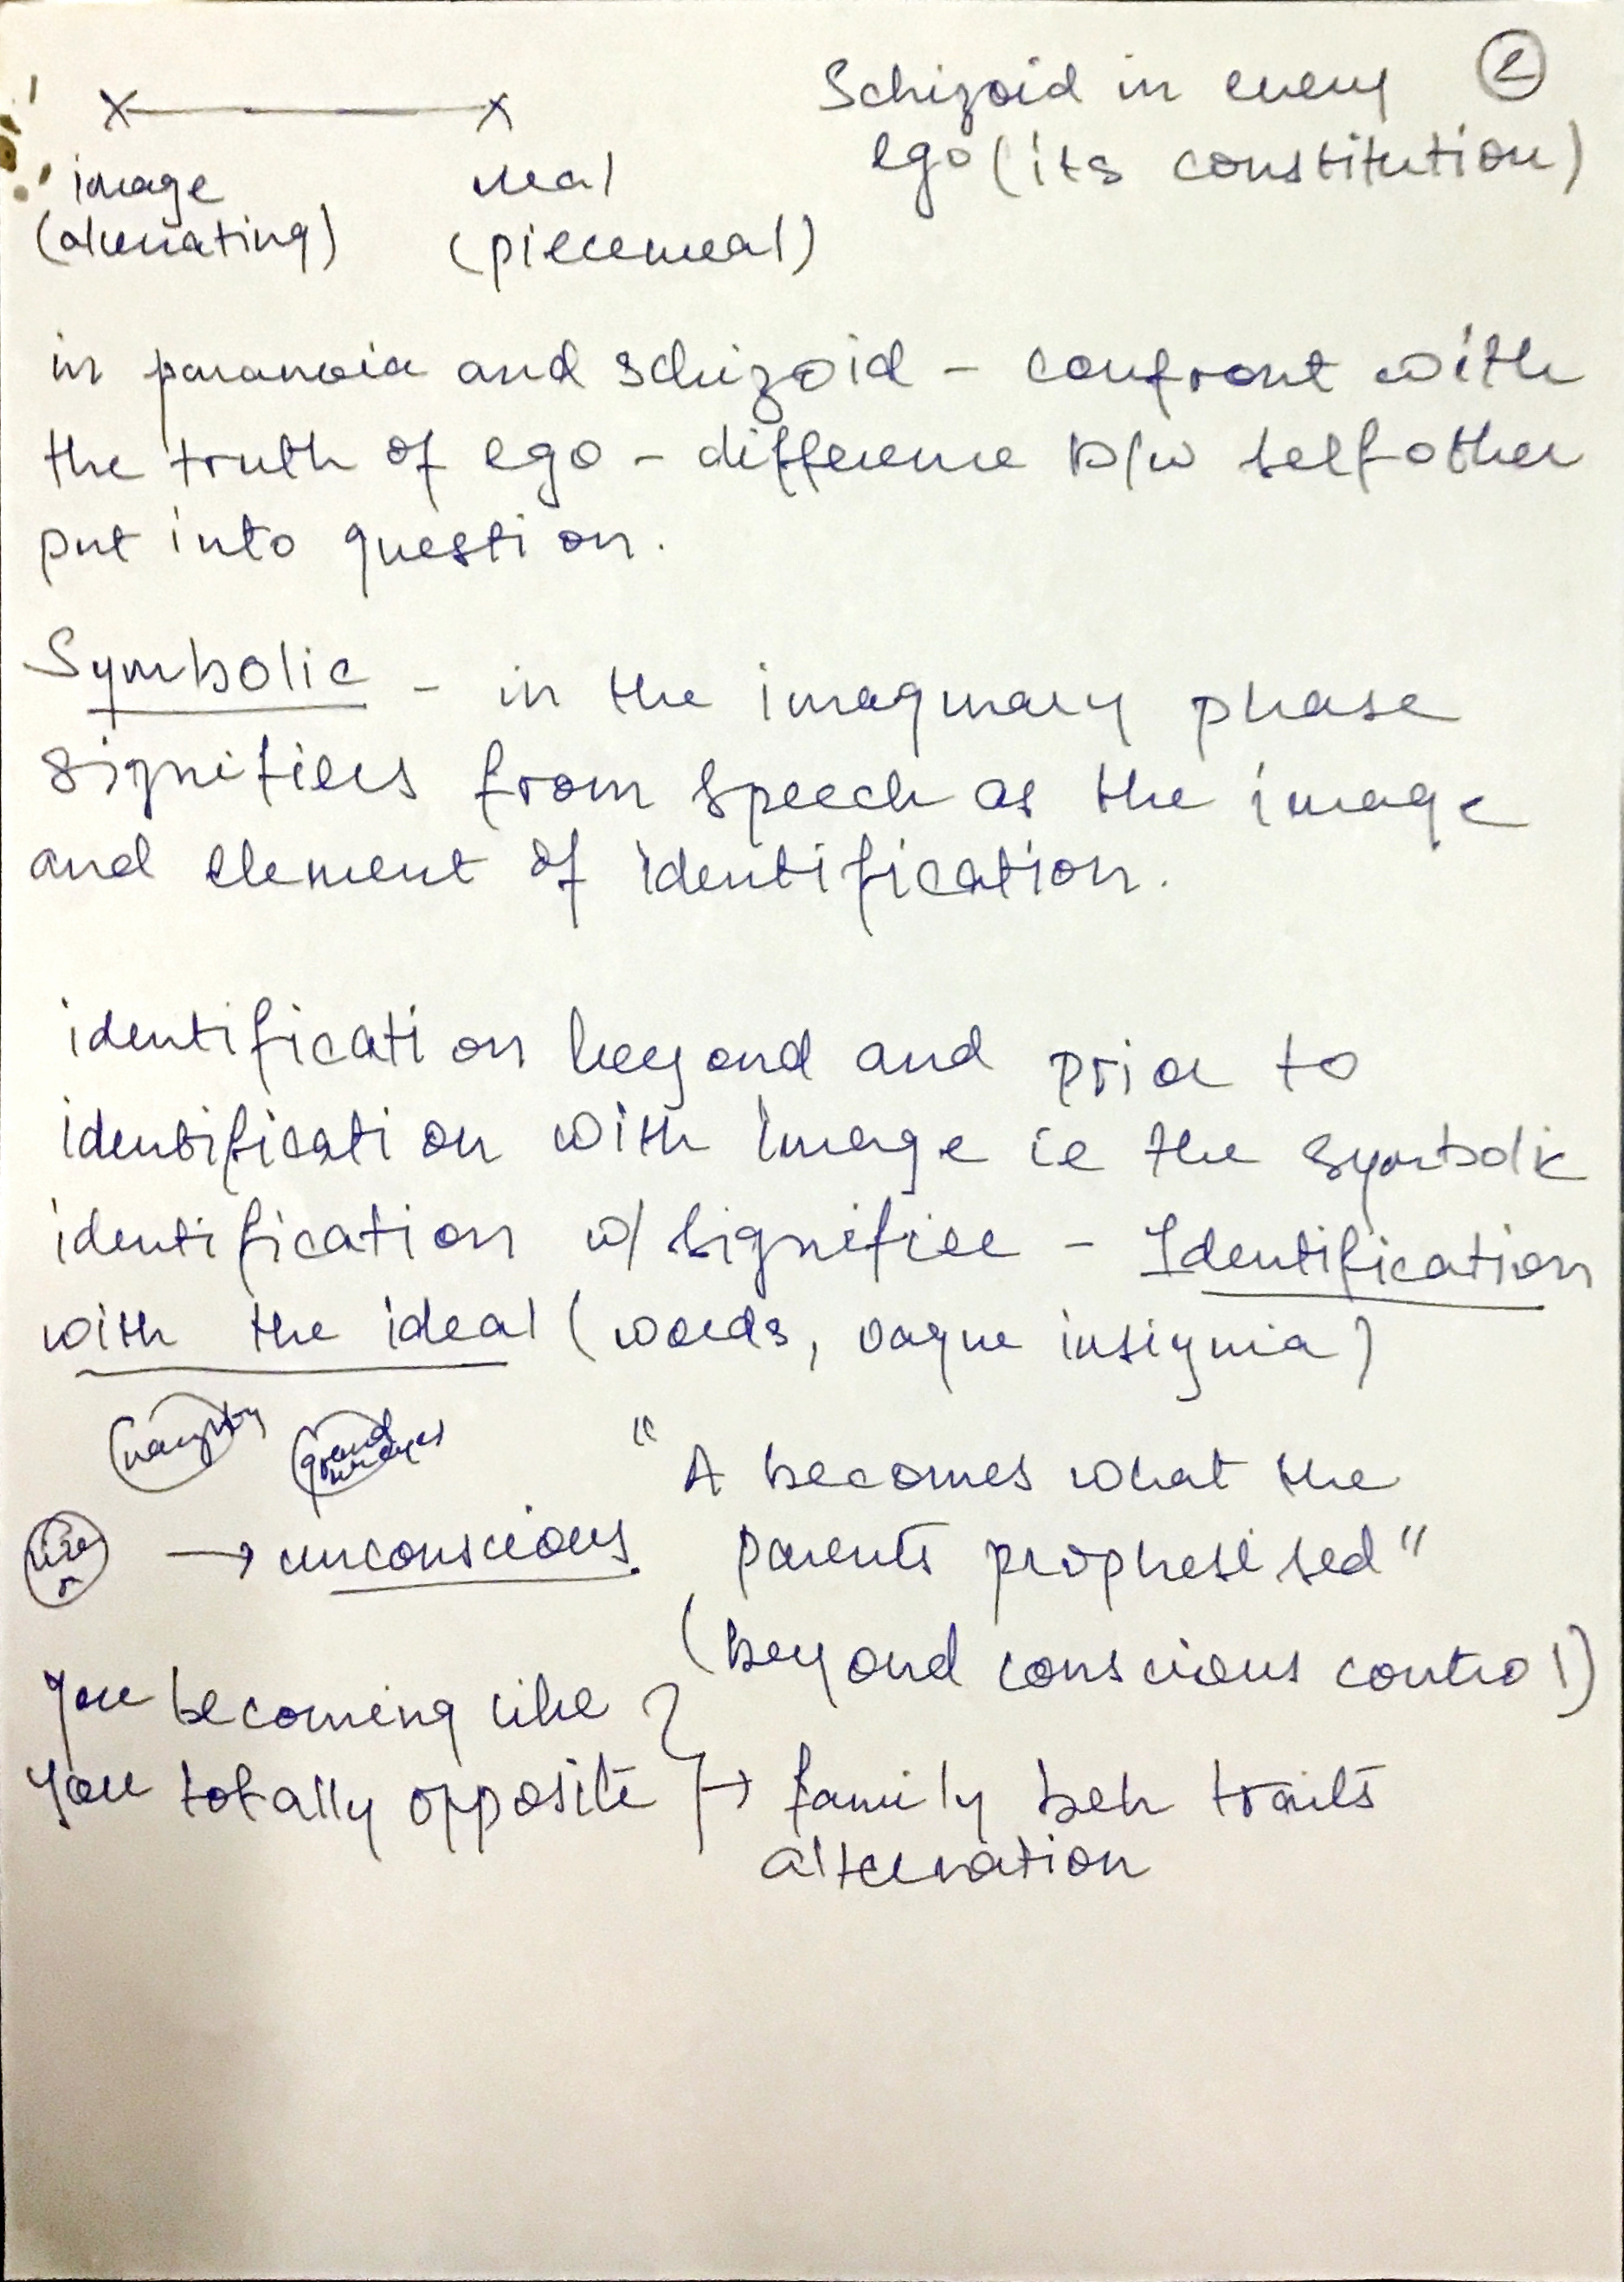 Schizoid in every 2
ego (its constitution)
x x
image real
(alienating) (piecemeal)
in paranoia and schizoid - confront with
the truth of ego - difference b/w self other
put into question.
Symbolic - in the imaginary phase
signifiers from speech as the image
and element of identification.
identification beyond and prior to
identification with image ie the symbolic
identification w/ signifier - Identification
with the ideal (words, vague insignia)
naughty
"A becomes what the
→ unconscious. parents prophesised"
(beyond conscious control)
You becoming like
You totally opposite → family beh traits
alternation